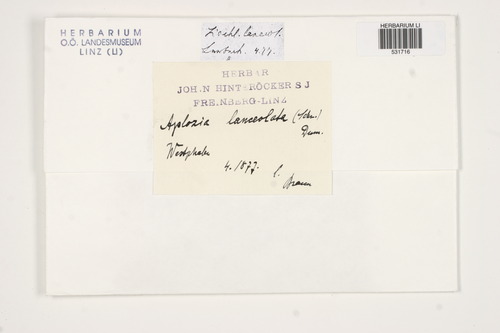 HERBARIUM
O.Ö. LANDESMUSEUM
LINZ (LI)
lanceol.
4.77.
HERBARIUM LI
531716
HERBAR
JOH.N HINTERÖCKER S J
FREINBERG-LINZ
Aplozia lanceolata (Schr.)
Dum.
Westphalen
4. 1877. l.
Braun